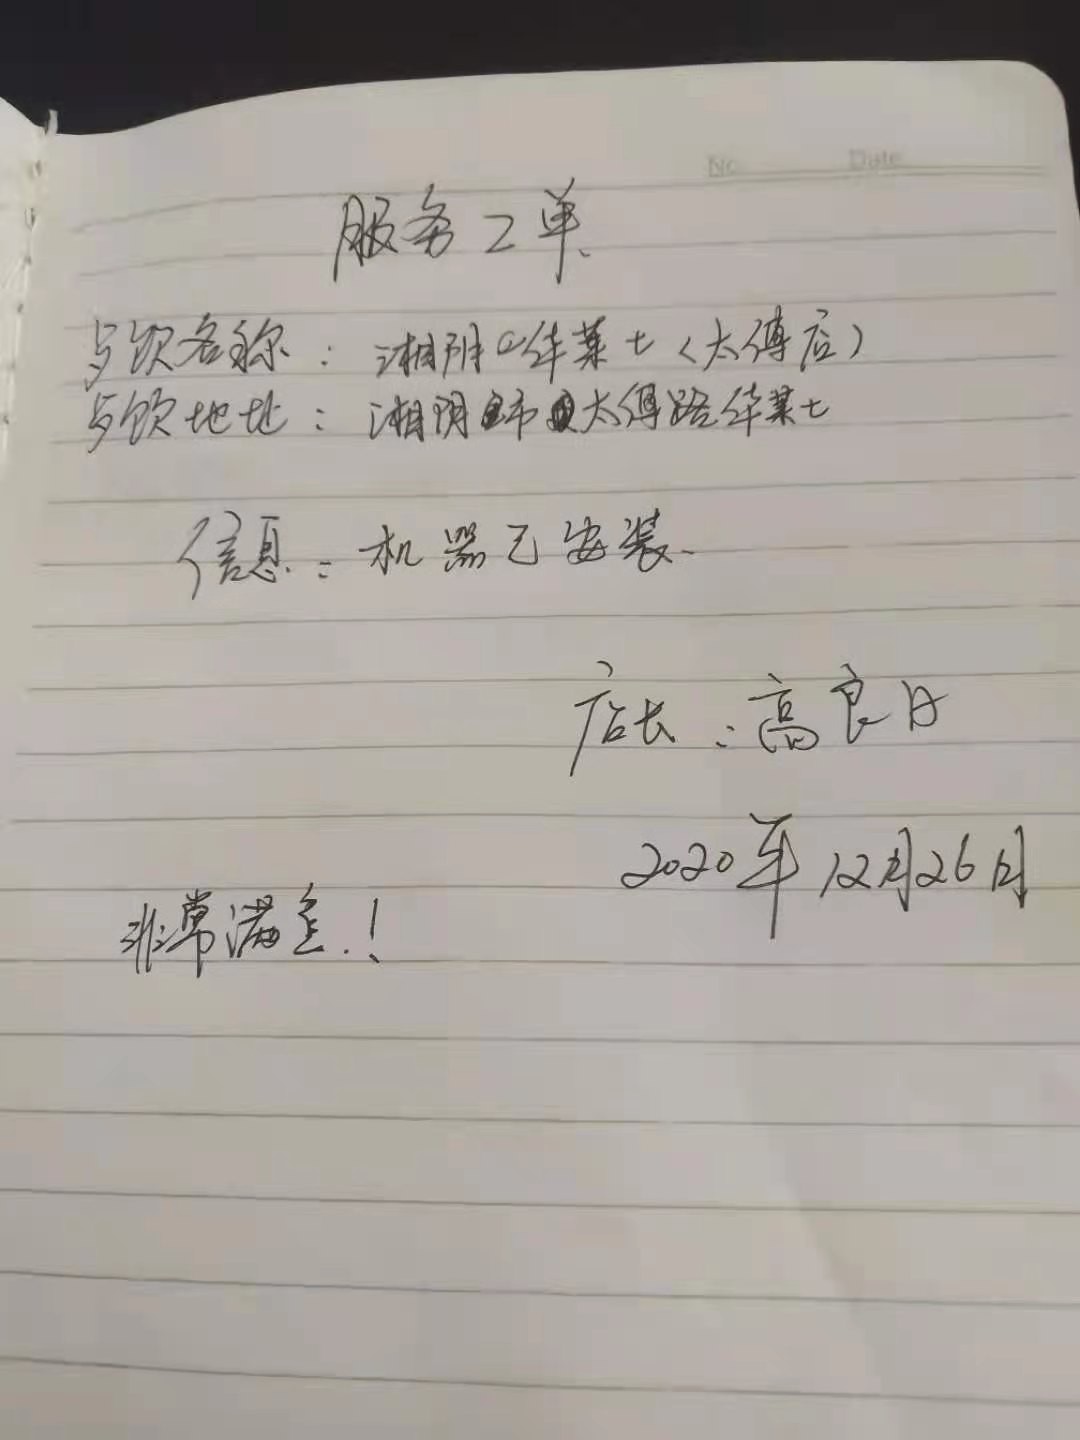 No Date
服务工单
名称：湘阴华莱士（太傅店）
地址：湘阴市太傅路华莱士
信息：机器已安装
店长：高良日
2020年12月26日
非常满意！